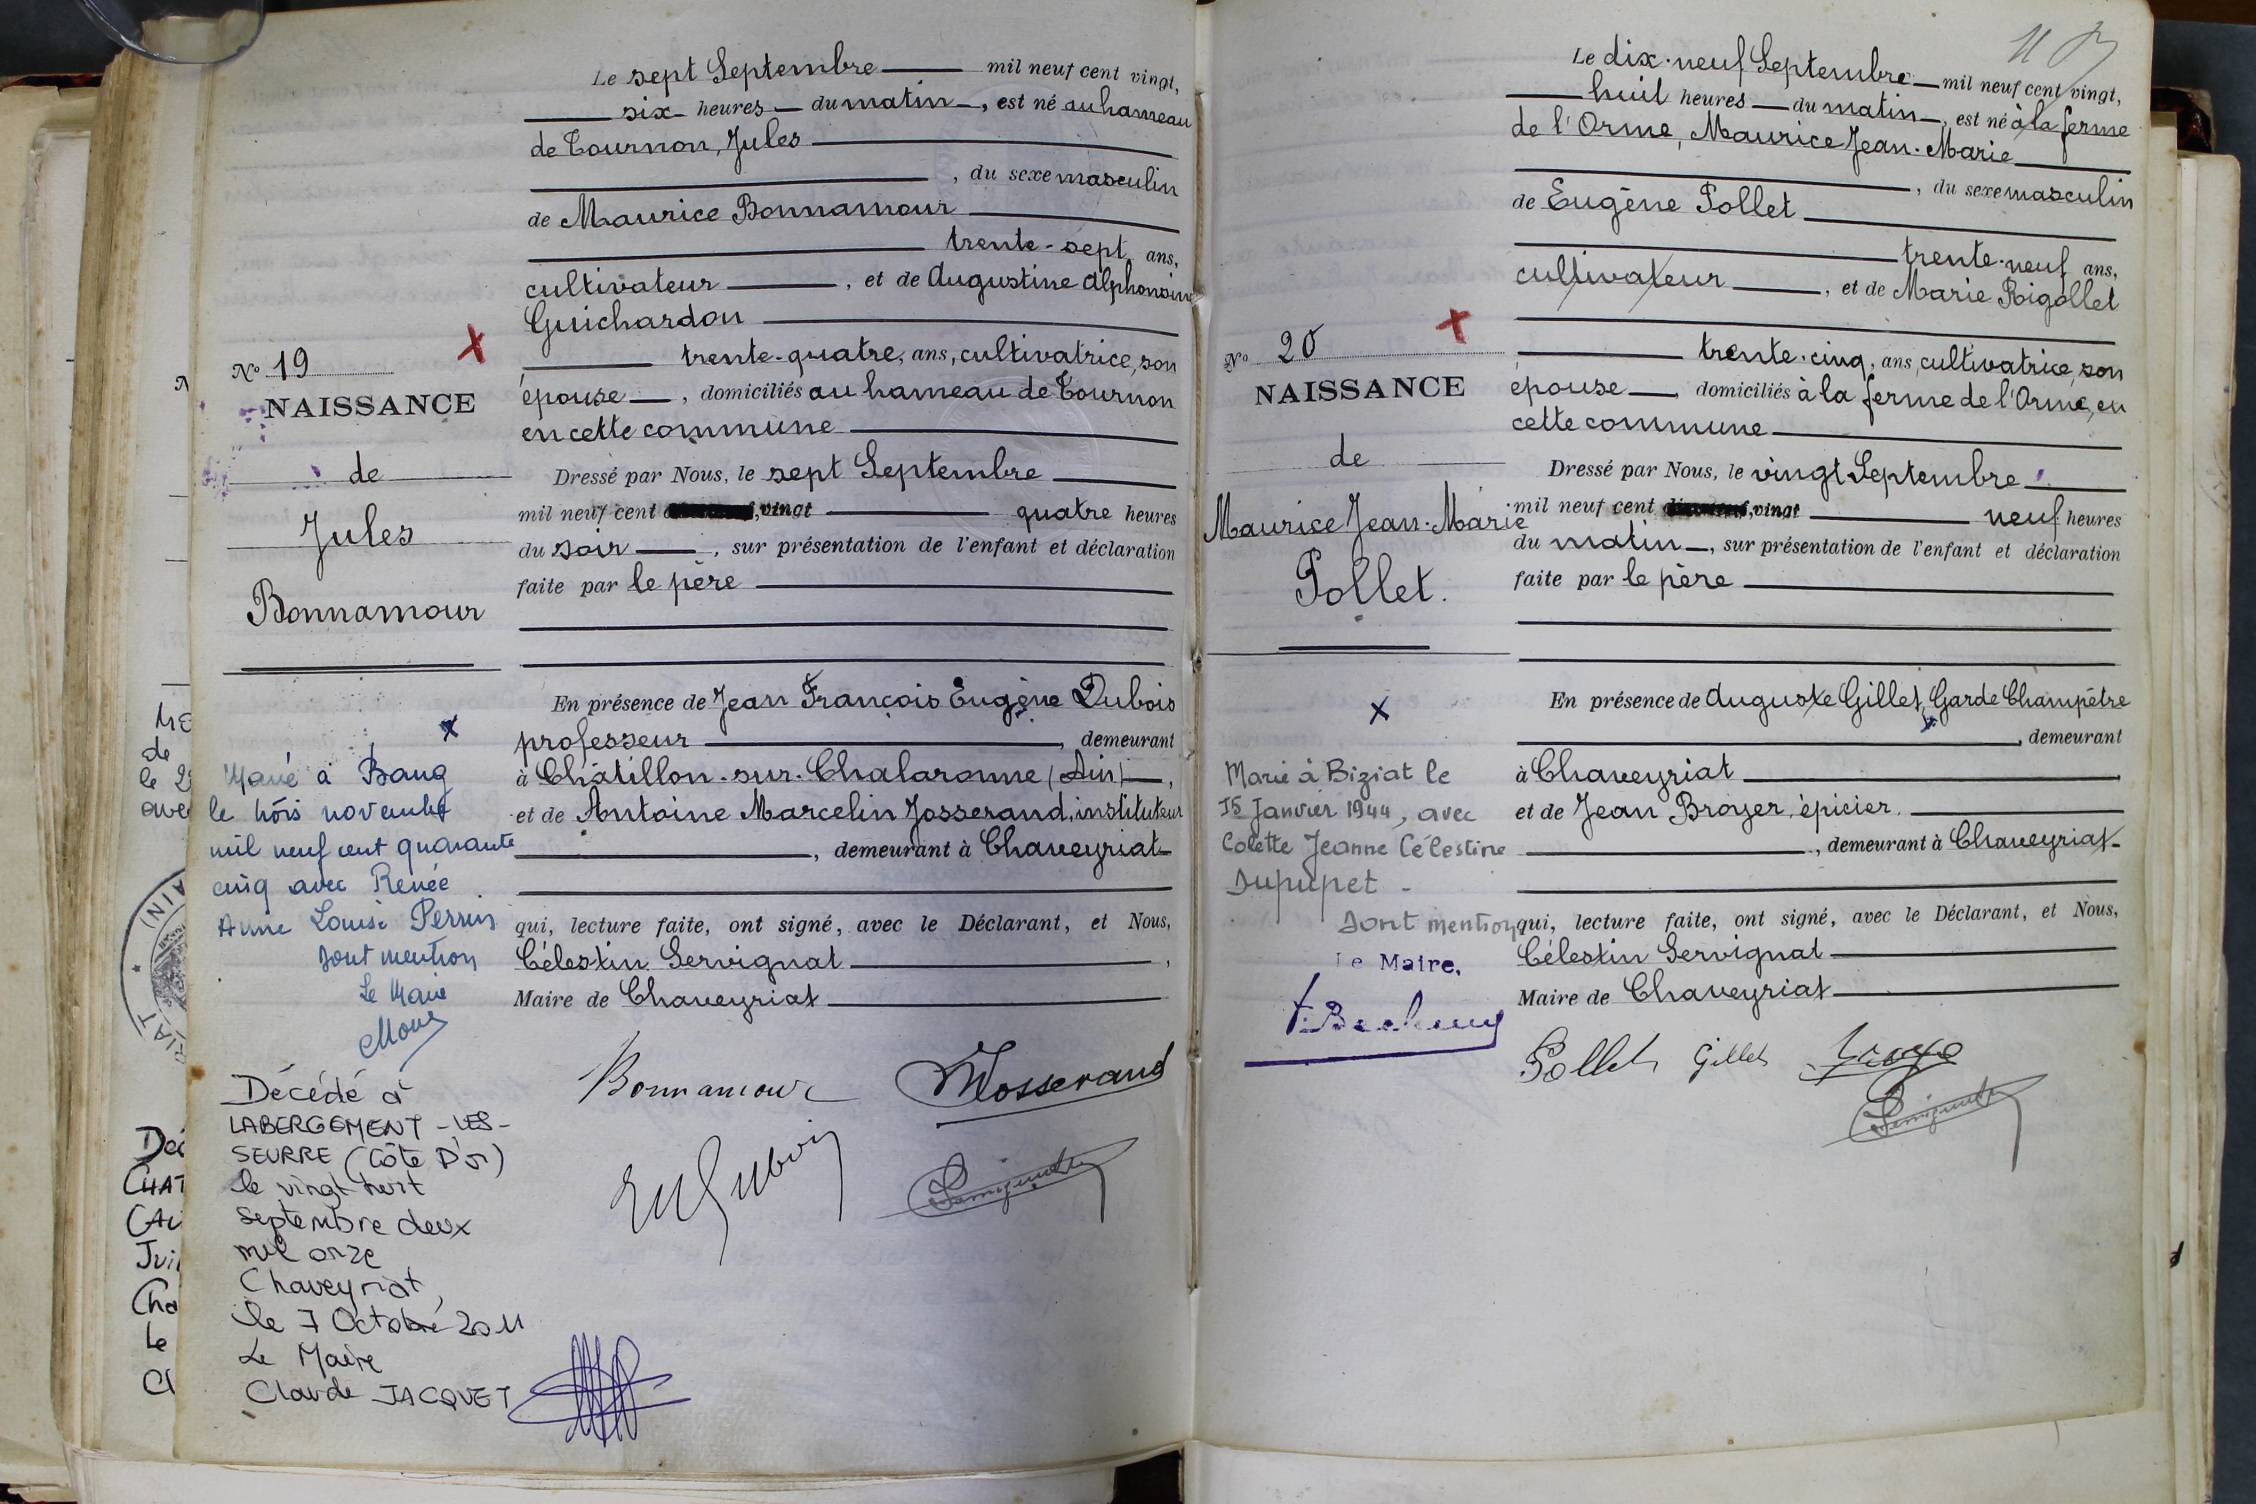 Le sept Septembre mil neuf cent vingt,
six heures du matin, est né au hameau
de Tournon, Jules
, du sexe masculin
de Maurice Bonnamour
trente-sept ans,
cultivateur, et de Augustine Alphonsine
Guichardon
trente-quatre, ans, cultivatrice, son
épouse, domiciliés au hameau de Tournon
en cette commune
Dressé par Nous, le sept Septembre
mil neuf cent vingt quatre heures
du soir, sur présentation de l'enfant et déclaration
faite par le père
En présence de Jean François Eugène Dubois
professeur, demeurant
à Châtillon-sur-Chalaronne (Ain),
et de Antoine Marcelin Josserand, instituteur
, demeurant à Chaveyriat
qui, lecture faite, ont signé, avec le Déclarant, et Nous,
Célestin Servignat,
Maire de Chaveyriat
Bonnamour Josserand
Dubois
Servignat
No 19
NAISSANCE
de
Jules
Bonnamour
Marié à Baug
le trois novembre
mil neuf cent quarante
cinq avec Renée
Anne Louise Perrin
Dont mention
Le Maire
Décédé à
LABERGEMENT-LES-
SEURRE (Côte D'or)
le vingt huit
septembre deux
mil onze
Chaveyriat,
le 7 Octobre 2011
Le Maire
Claude JACQUET
Le dix-neuf Septembre mil neuf cent vingt,
huit heures du matin, est né à la ferme
de l'Orme, Maurice Jean-Marie
, du sexe masculin
de Eugène Pollet
trente-neuf ans,
cultivateur, et de Marie Rigollet
trente-cinq, ans, cultivatrice, son
épouse, domiciliés à la ferme de l'Orme, en
cette commune
Dressé par Nous, le vingt Septembre
mil neuf cent vingt neuf heures
du matin, sur présentation de l'enfant et déclaration
faite par le père
En présence de Auguste Gillet, Garde Champêtre
, demeurant
à Chaveyriat
et de Jean Broyer, épicier.
, demeurant à Chaveyriat
qui, lecture faite, ont signé, avec le Déclarant, et Nous,
Célestin Servignat
Maire de Chaveyriat
Pollet Gillet
Servignat
No 20
NAISSANCE
de
Maurice Jean-Marie
Pollet.
Marié à Biziat le
15 Janvier 1944, avec
Colette Jeanne Célestine
Dupupet -
Dont mention
Le Maire,